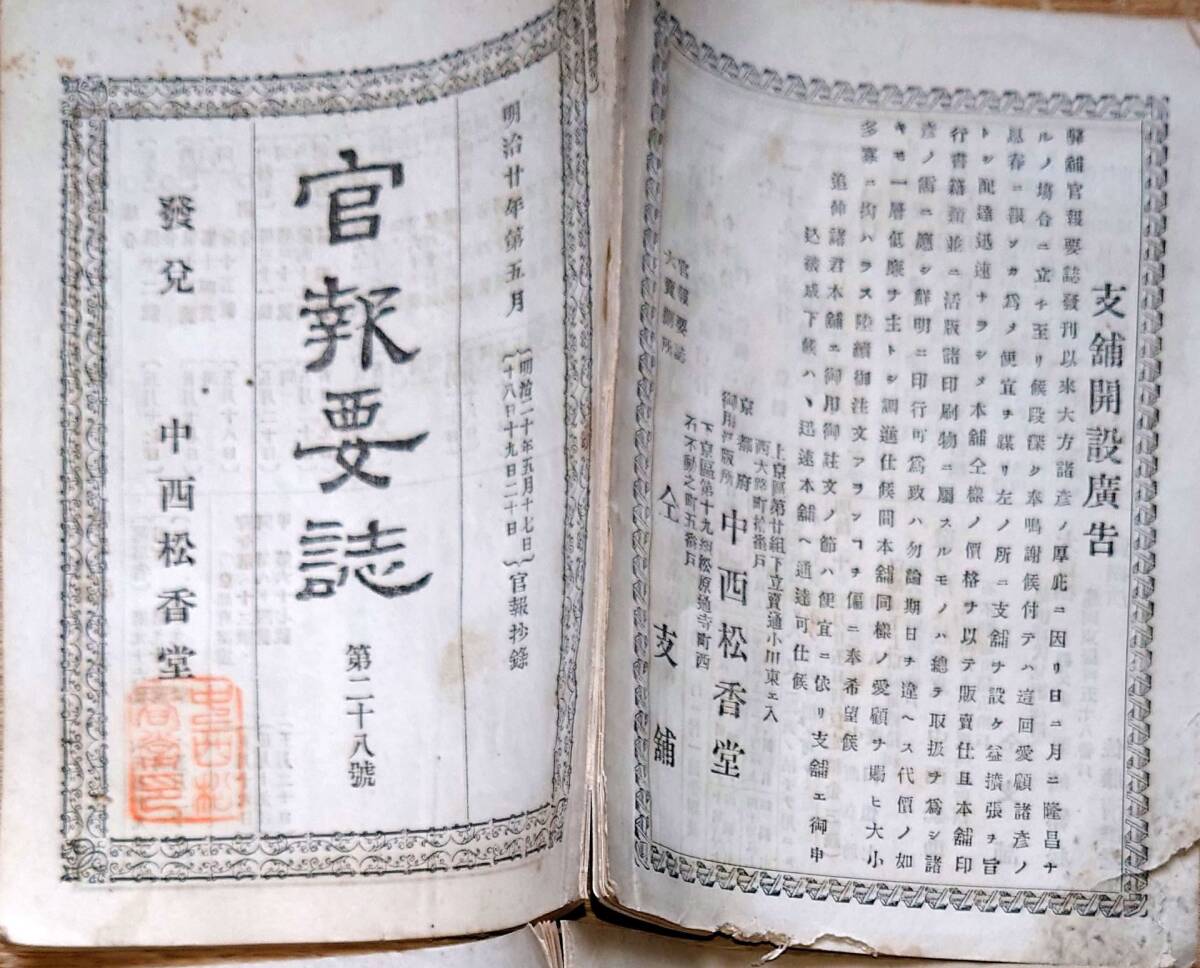 支舖開設廣告
弊舖官報要誌發刊以來大方諸彦ノ厚庇ニ因リ日ニ月ニ隆昌ナ
ルノ場合ニ立チ至リ候段深ク奉鳴謝候付テハ這回愛顧諸彦ノ
恩眷ニ報ンカ爲メ便宜ヲ謀リ左ノ所ニ支舖ヲ設ケ益擴張ヲ旨
トシ配達迅速ナラシメ本舖仝樣ノ價格ヲ以テ販賣仕且本舖印
行書籍類並ニ活版諸印刷物ニ屬スルモノハ總テ取扱ヲ爲シ諸
彦ノ需ニ應シ鮮明ニ印行可爲致ハ勿論期日ヲ違ヘス代價ノ如
キモ一層低廉ヲ主トシ調進仕候間本舖同樣ノ愛顧ヲ賜ヒ大小
多寡ニ拘ハラス陸續御注文アランヿヲ偏ニ奉希望候
追伸諸君本舖エ御用御註文ノ節ハ便宜ニ依リ支舖エ御申
込被成下候ハヽ迅速本舖ヘ通達可仕候
上京區第廿組下立賣通小川東エ入
西大路町拾番戸
京都府
御用活版所
中西松香堂
下京區第十九組松原通寺町西
不動之町五番戸
仝支舖
官報要誌
大賣捌所
明治廿年第五月
明治二十年五月十七日
十八日十九日二十日
官報抄錄
官報要誌
第二十八號
發兌
中西松香堂